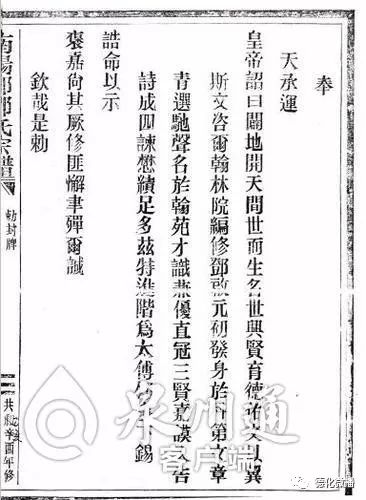 奉
天承運
皇帝詔曰闢地開天間世而生名世興賢育德佑文以翼
斯文咨爾翰林院編修鄧啟元初發身於科第文章
青選馳聲名於翰苑才識兼優直冠三賢嘉謨入告
詩成四諫懋績足多茲特進階爲太傅錫
誥命以示
褒嘉向其厥修匪懈聿殫爾誠
欽哉是勅
南陽郡鄧氏宗譜
勅封牌
共和辛酉年修
泉州通
客户端
德化